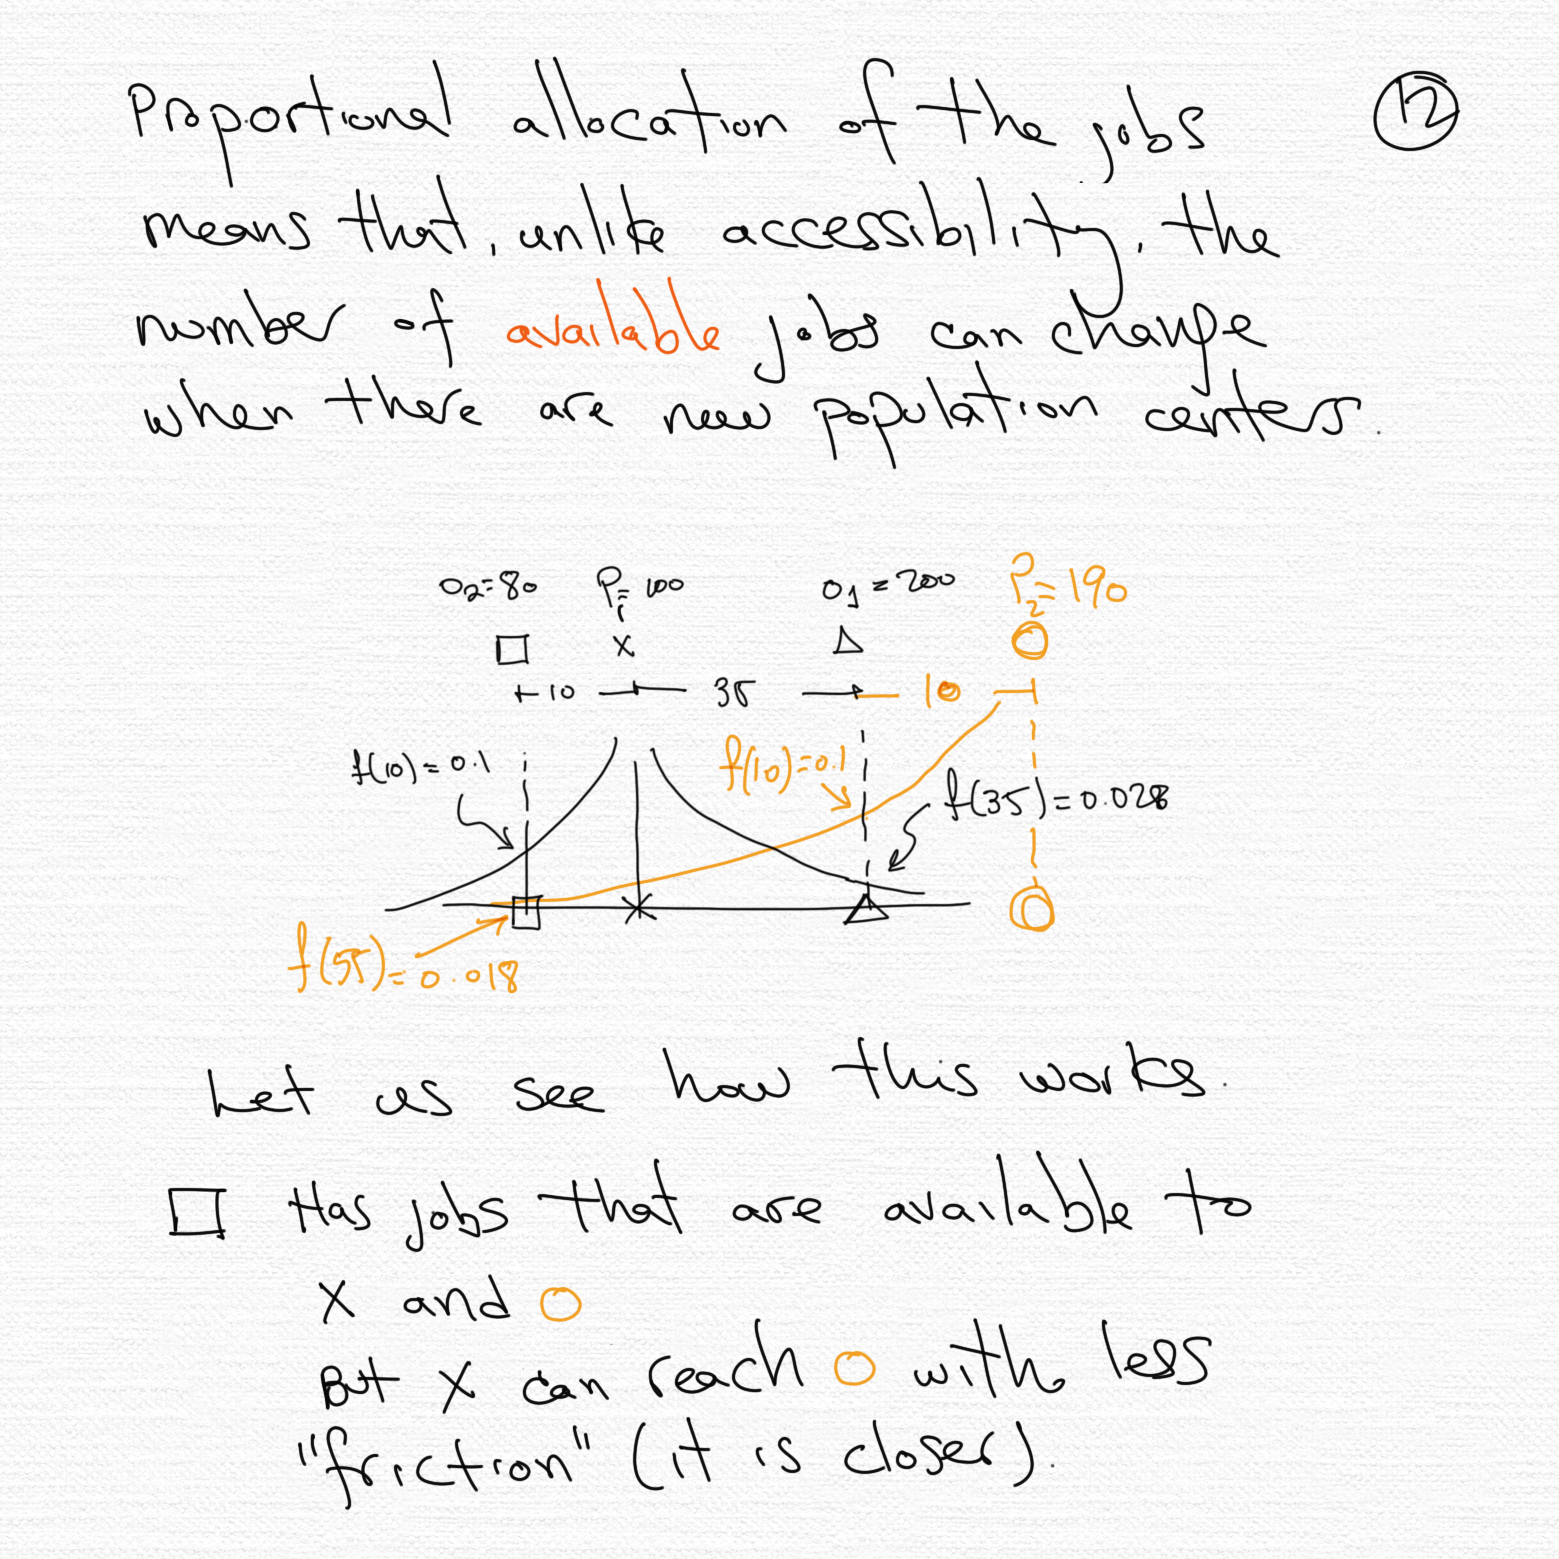 Proportional allocation of the jobs
12
means that, unlike accessibility, the
number of available jobs can change
when there are new population centers.
O2=80 P1=100 O1=200 P2=190
□ X △ O
10 35 10
f(10)=0.1 f(10)=0.1
f(35)=0.028
f(55)=0.018
Let us see how this works.
□ Has jobs that are available to
X and O
But X can reach O with less
"friction" (it is closer).